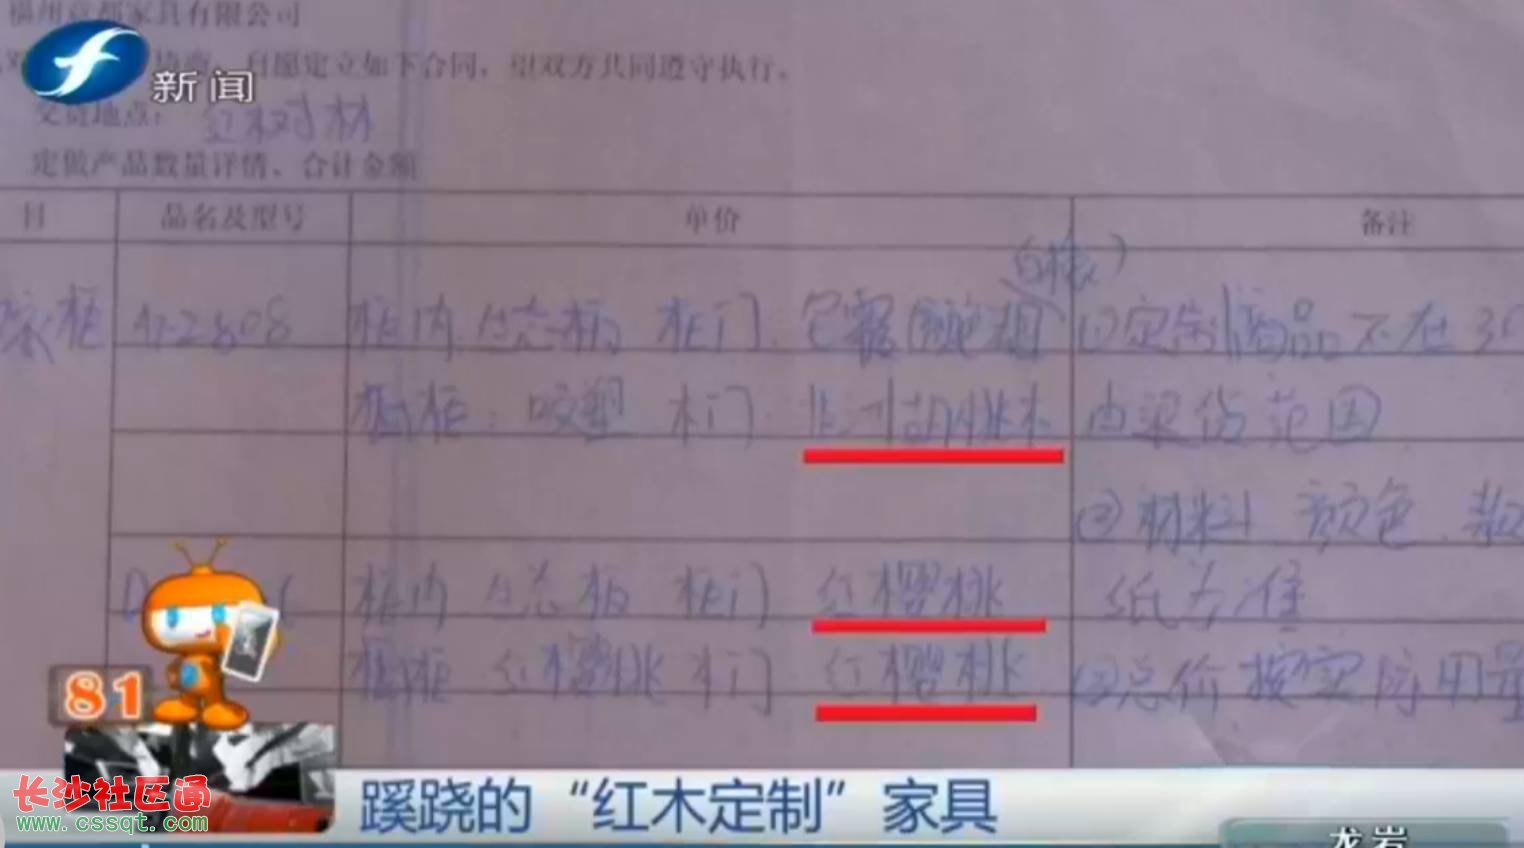 福州意都家具有限公司
协商，自愿定立如下合同，望双方共同遵守执行。
新闻
交货地点：红树林
定做产品数量详情、合计金额
目 品名及型号 单价 备注
柜 A-2808 柜内 生态板 柜门 (1)定制商品不在
橱柜：吸塑 木门 非洲胡桃木 范围
(2)材料 颜色、款
柜内 生态板 柜门 红樱桃 纸为准
橱柜 红樱桃 木门 红樱桃 (3)总价按实际用量
81
长沙社区通
www.cssqt.com
蹊跷的“红木定制”家具
龙岩